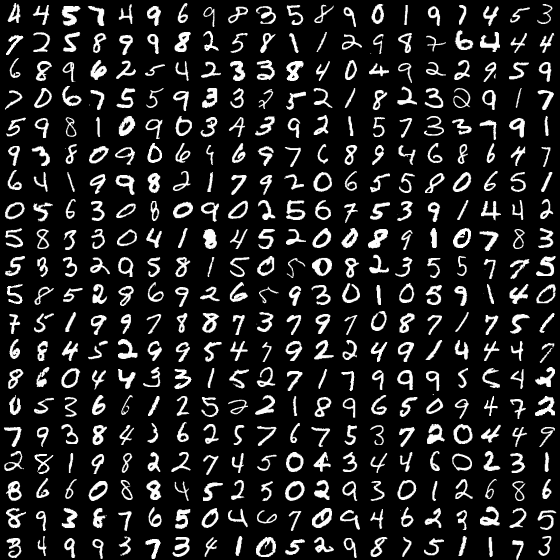 4 4 5 7 4 9 6 9 8 3 5 8 9 0 1 9 7 4 5 3
7 2 5 8 9 9 8 2 5 8 1 1 2 9 8 7 6 4 4 4
6 8 9 6 2 5 4 2 3 3 8 4 0 4 9 2 2 9 5 9
7 0 6 7 5 5 9 3 3 2 5 2 1 8 2 3 2 9 1 7
5 9 8 1 0 9 0 3 4 3 9 2 1 5 7 3 3 7 9 1
9 3 8 0 9 0 6 4 6 9 7 6 8 9 4 6 8 6 4 7
6 4 1 9 9 8 2 1 7 9 2 0 6 5 5 8 0 6 5 1
0 5 6 3 0 8 0 9 0 2 5 6 7 5 3 9 1 4 4 2
5 8 3 3 0 4 1 8 4 5 2 0 0 8 9 1 0 7 8 3
5 3 3 2 9 5 8 1 5 0 5 0 8 2 3 5 5 7 7 5
5 8 5 2 8 6 9 2 6 5 9 3 0 1 0 5 9 1 4 0
7 5 1 9 9 7 8 8 7 3 7 9 7 0 8 7 1 7 5 1
6 8 4 5 2 9 9 5 4 7 9 2 2 4 9 1 4 4 4 7
8 6 0 4 4 3 3 1 5 2 7 1 7 9 9 9 5 5 4 2
0 5 3 6 6 1 2 5 2 2 1 8 9 6 5 0 9 4 7 2
7 9 3 8 4 3 6 2 5 7 6 7 5 3 7 2 0 4 4 9
2 8 1 9 8 2 2 7 4 5 0 4 3 4 4 6 0 2 3 1
8 6 6 0 8 8 4 5 2 5 0 2 9 3 0 1 2 6 8 6
8 9 3 8 7 6 5 0 4 6 7 0 9 4 6 2 3 2 2 5
3 4 9 9 3 7 3 4 1 0 5 2 9 8 7 5 1 1 7 3